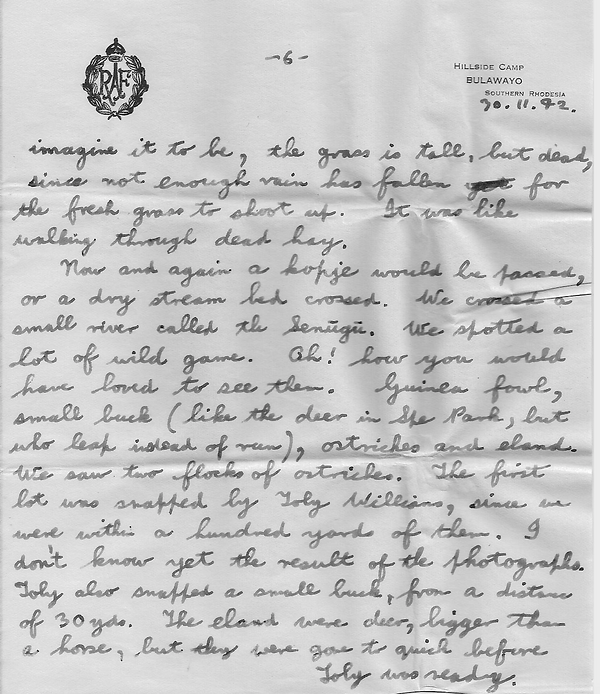 -6-
RAF
HILLSIDE CAMP
BULAWAYO
SOUTHERN RHODESIA
30.11.42.
imagine it to be, the grass is tall, but dead,
since not enough rain has fallen for
the fresh grass to shoot up. It was like
walking through dead hay.
Now and again a kopje would be passed,
or a dry stream bed crossed. We crossed a
small river called the Senügü. We spotted a
lot of wild game. Oh! how you would
have loved to see them. Guinea fowl,
small buck (like the deer in Spe Park, but
who leap instead of run), ostriches and eland.
We saw two flocks of ostriches. The first
lot was snapped by Toby Willians, since we
were within a hundred yards of them. I
don't know yet the result of the photographs.
Toby also snapped a small buck, from a distance
of 30 yds. The eland were deer, bigger than
a horse, but they were gone to quick before
Toby was ready.